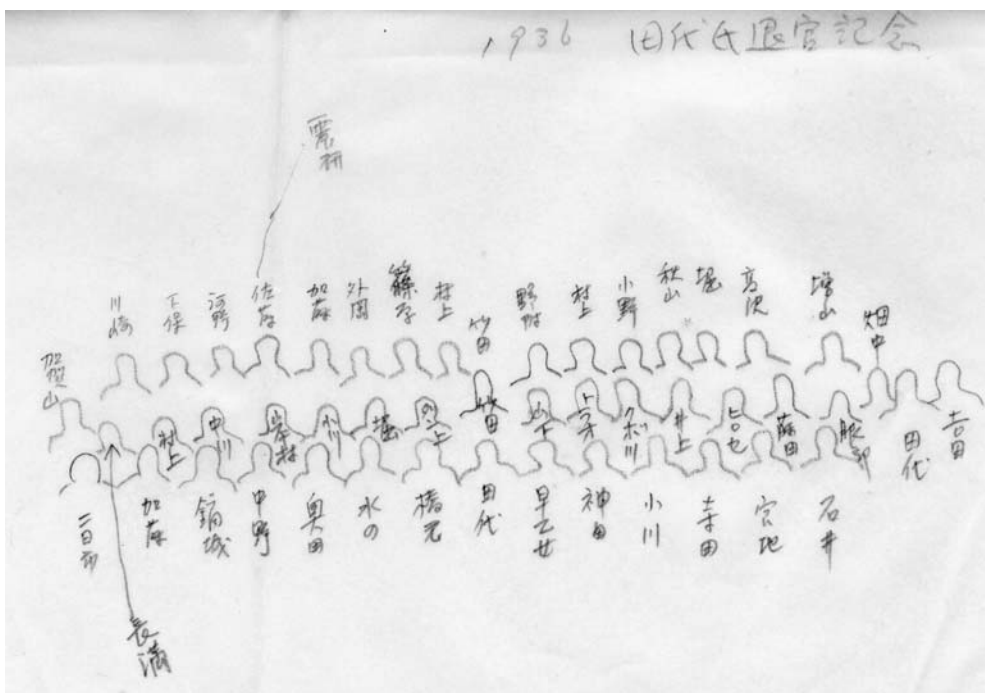 1936 田代氏退官記念
震研
川崎
下保
河野
佐藤
加藤
外岡
村上
竹田
野村
村上
小野
秋山
堀
高沢
増山
畑中
加賀山
村上
中川
岩村
小川
堀
竹田
山下
井上
藤田
服部
田代
吉田
加藤
鏑城
中野
奥田
水の
橋元
田代
早乙女
神田
小川
寺田
宮地
石井
長満